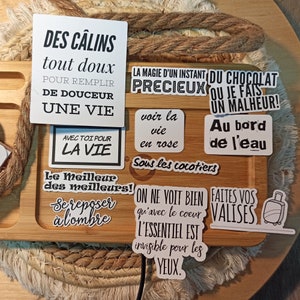 DES CÂLINS
tout doux
POUR REMPLIR
DE DOUCEUR
UNE VIE
LA MAGIE D'UN INSTANT
PRÉCIEUX
DU CHOCOLAT
OU JE FAIS
UN MALHEUR!
voir la
vie
en rose
Au bord
de l'eau
AVEC TOI POUR
LA VIE
Sous les cocotiers
Le meilleur
des meilleurs!
Se reposer
à l'ombre
ON NE VOIT BIEN
qu'avec le coeur
L'ESSENTIEL EST
invisible pour les
YEUX.
FAITES VOS
VALISES